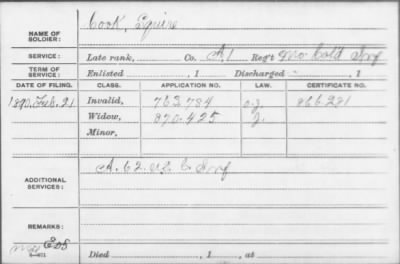 NAME OF SOLDIER: Cook, Squire
SERVICE: Late rank, Co. A, 1 Reg't Mo Cold Inf
TERM OF SERVICE: Enlisted , 1 Discharged , 1
DATE OF FILING. CLASS. APPLICATION NO. LAW. CERTIFICATE NO.
1890, Feb. 21 Invalid, 763.784 866.281
Widow, 870.425
Minor,
ADDITIONAL SERVICES: A. 62. U.S. C. Inf
REMARKS:
3—071
Died , 1 , at